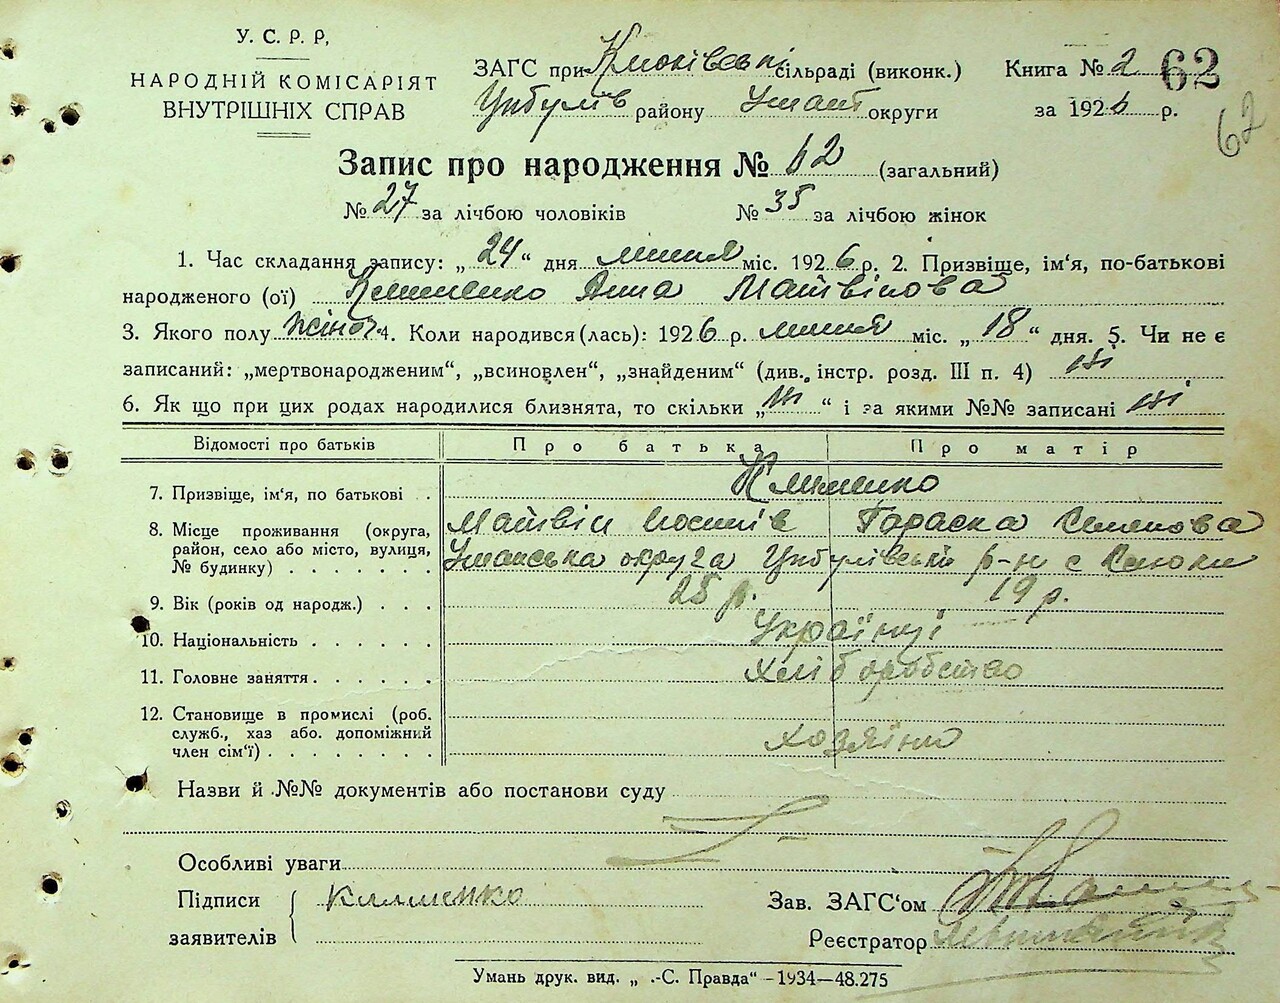 У. С. Р. Р,
НАРОДНІЙ КОМІСАРІЯТ
ВНУТРІШНІХ СПРАВ
ЗАГС при Клюківські сільраді (виконк.)
Цибулів району Уман округи
Книга № 2 62
за 1926 р.
62
Запис про народження № 62 (загальний)
№ 27 за лічбою чоловіків № 35 за лічбою жінок
1. Час складання запису: „ 24 “ дня липня міс. 1926 р. 2. Призвіще, ім'я, по-батькові
народженого (ої) Клименко Анна Матвіїова
3. Якого полу жіноч. 4. Коли народився (лась): 1926 р. липня міс. „ 18 “ дня. 5. Чи не є
записаний: „мертвонародженим“, „всиновлен“, „знайденим“ (див. інстр. розд. III п. 4) ні
6. Як що при цих родах народилися близнята, то скільки „ ні “ і за якими №№ записані ні
Відомості про батьків Про батька Про матір
7. Призвіще, ім'я, по батькові . Клименко
8. Місце проживання (округа, Матвій Йосипів Параска Семенова
район, село або місто, вулиця, Уманська округа Цибулівській р-н с Клюки
№ будинку) . . . . . . .
9. Вік (років од народж.) . . . 25 р. 19 р.
10. Національність . . . . . . Українці
11. Головне заняття . . . . . . хліборобство
12. Становище в промислі (роб.
служб., хаз або. допоміжний хозяїни
член сім'ї) . . . . . . . .
Назви й №№ документів або постанови суду
Особливі уваги
Підписи Клименко Зав. ЗАГС'ом
заявителів Реєстратор
Умань друк. вид. „ .-С. Правда“ -1934—48.275